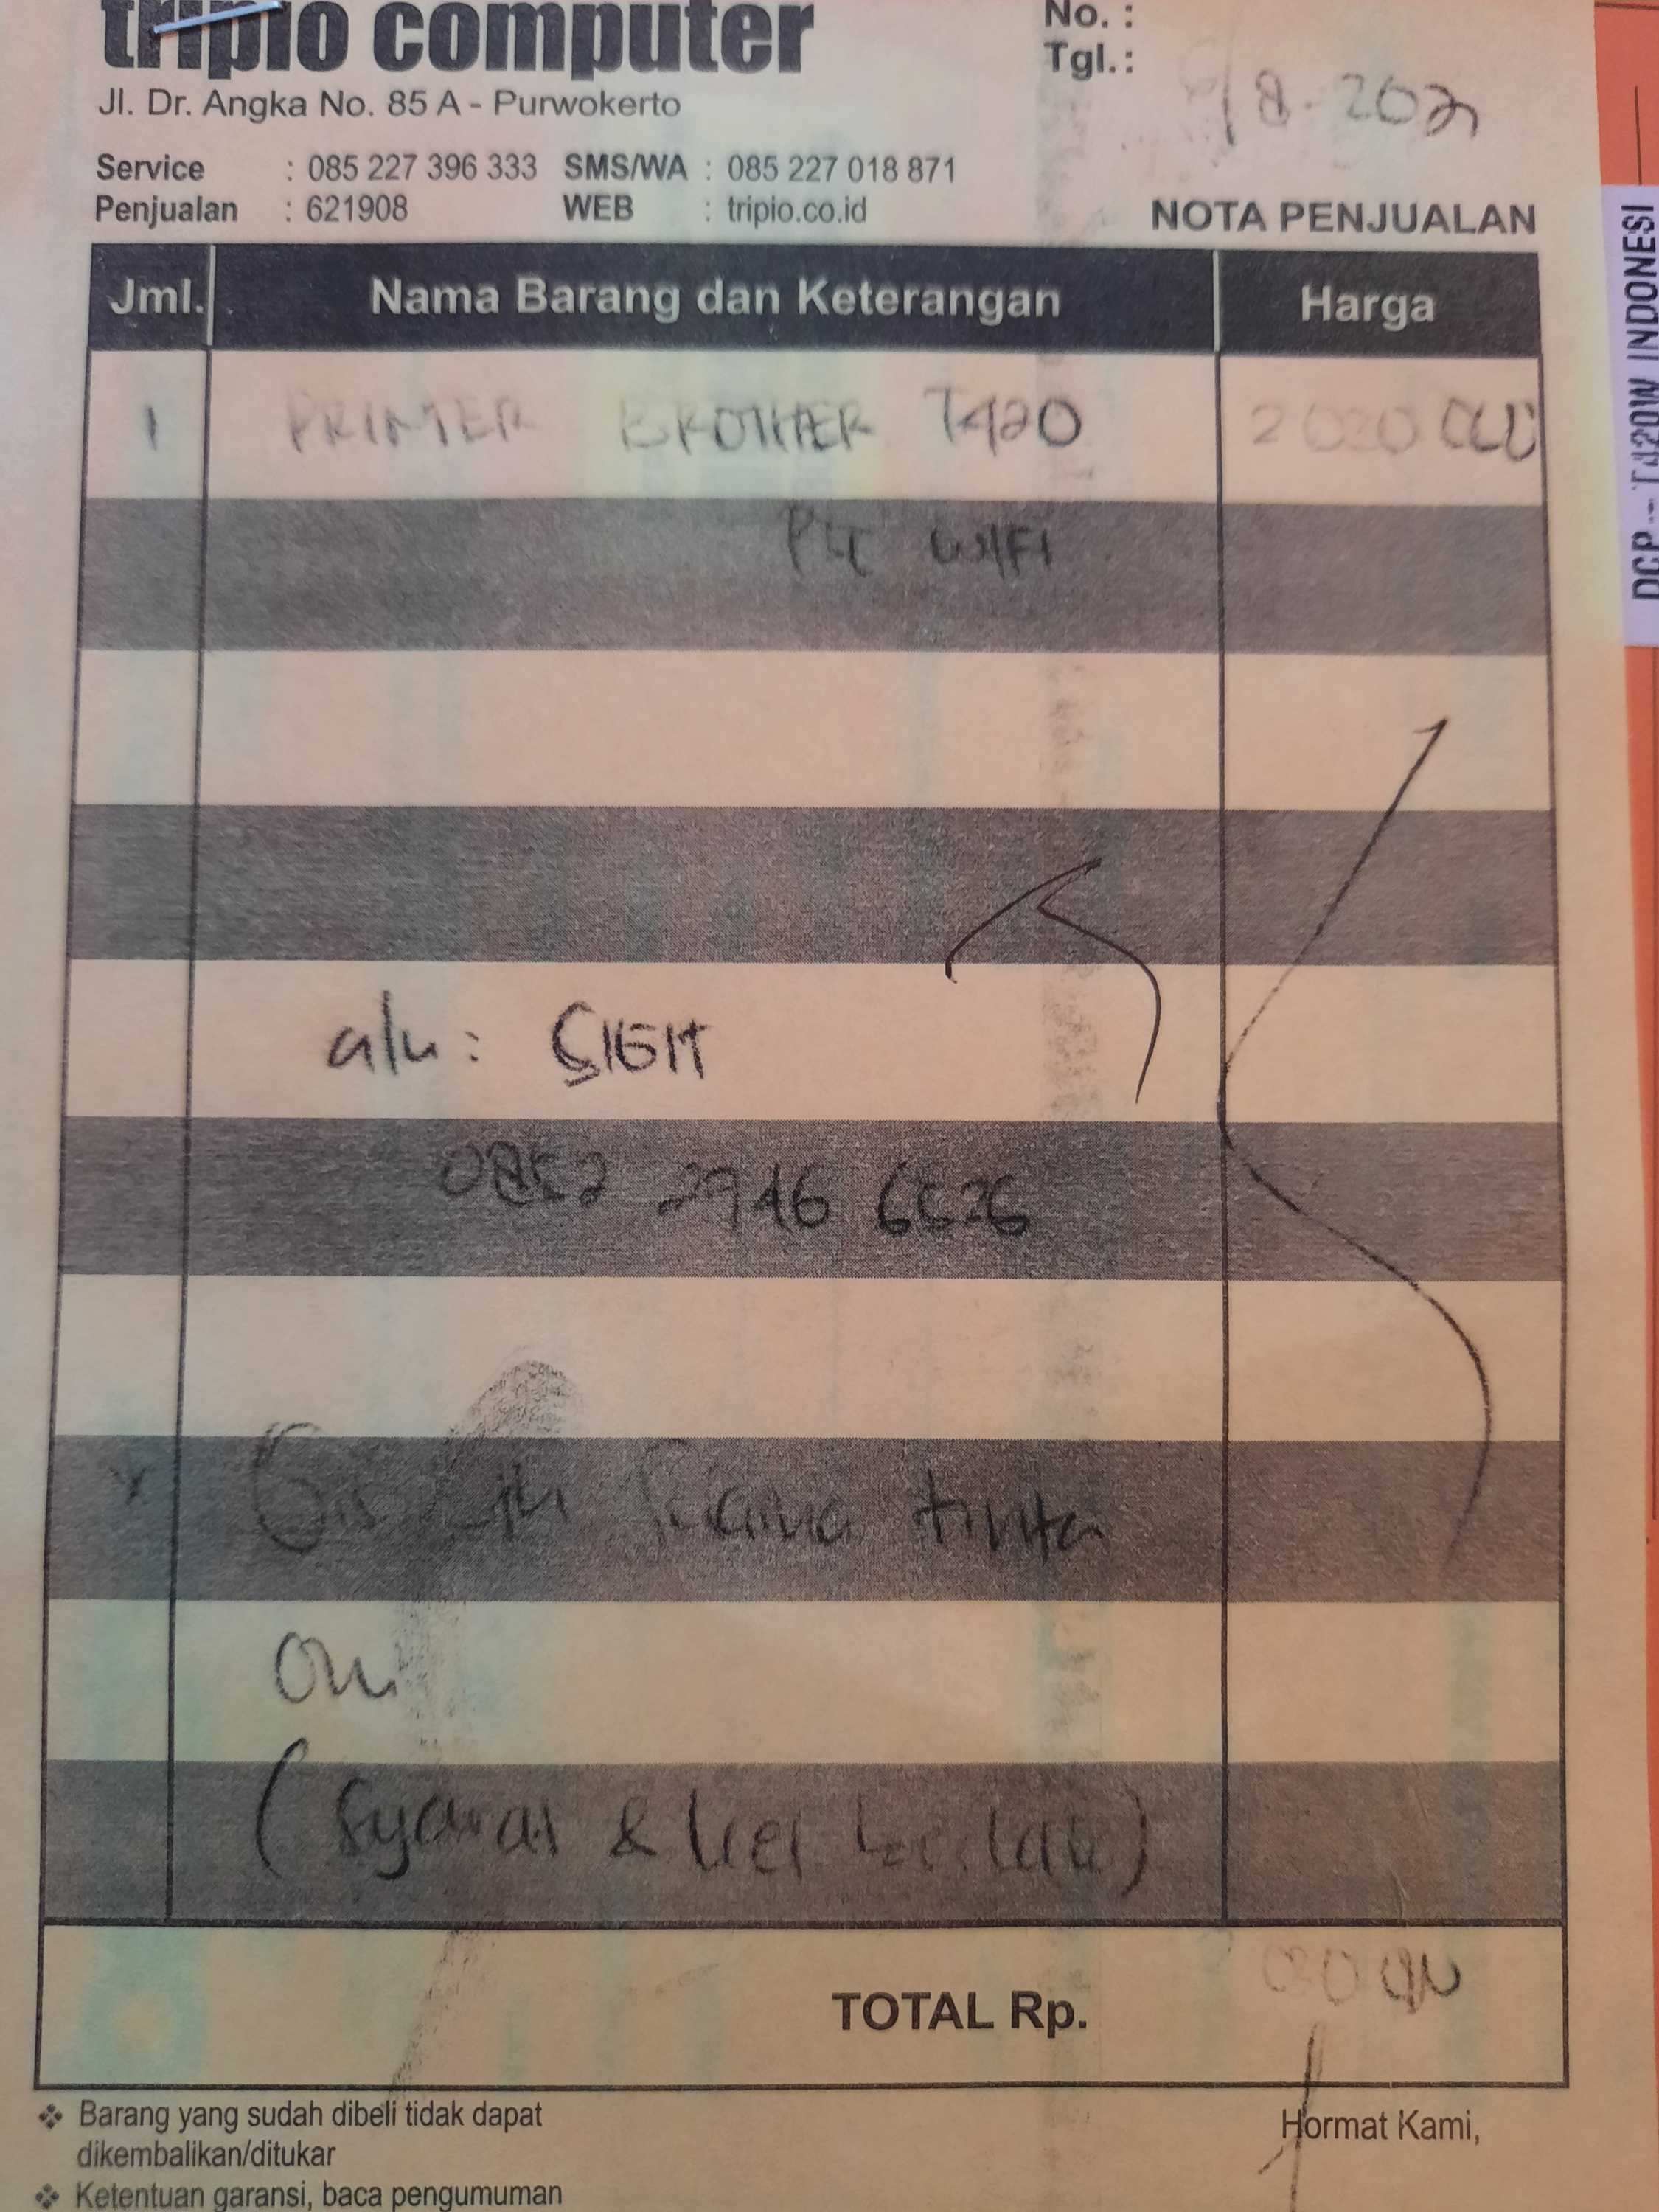 tripio computer
No. :
Tgl. : /8-2021
Jl. Dr. Angka No. 85 A - Purwokerto
Service : 085 227 396 333 SMS/WA : 085 227 018 871
Penjualan : 621908 WEB : tripio.co.id
NOTA PENJUALAN
Jml. Nama Barang dan Keterangan Harga
1 PRINTER BROTHER T420 2020 000
WIFI
a/n : SIGIT
0852 2946
x tinta
(Syarat & ber laku)
TOTAL Rp.
❖ Barang yang sudah dibeli tidak dapat
dikembalikan/ditukar
Hormat Kami,
❖ Ketentuan garansi, baca pengumuman
DCP - T420W INDONESI